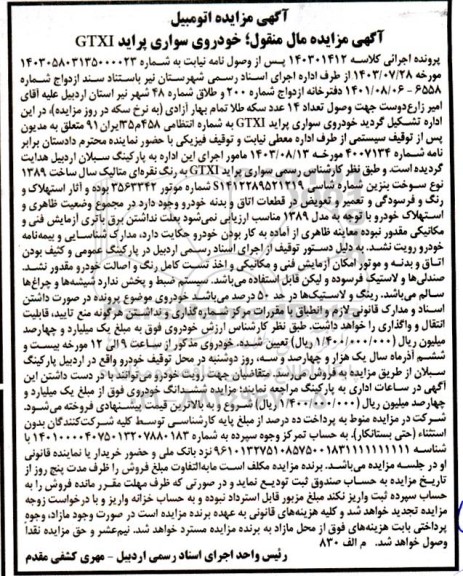 آگهی مزایده اتومبیل
آگهی مزایده مال منقول؛ خودروی سواری پراید GTXI
پرونده اجرائی کلاسه ۱۴۰۳۰۱۴۱۲ پس از وصول نامه نیابت به شماره ۱۴۰۳۰۵۸۰۳۱۳۵۰۰۰۰۲۳
مورخه ۱۴۰۳/۰۷/۲۸ از طرف اداره اجرای اسناد رسمی شهرستان نیر باستناد سند ازدواج شماره
۶۵۵۸ - ۱۴۰۱/۰۸/۰۶ دفترخانه ازدواج شماره ۲۰۰ و طلاق شماره ۴۸ شهر نیر استان اردبیل علیه آقای
امیر زارع‌دوست جهت وصول تعداد ۱۴ عدد سکه طلا تمام بهار آزادی (به نرخ سکه در روز مزایده)، در این
اداره تشکیل گردید خودروی سواری پراید GTXI به شماره انتظامی ۴۵۸م۳۵ایران۹۱ متعلق به مدیون
پس از توقیف سیستمی از طرف اداره معطی نیابت و توقیف فیزیکی با حضور نماینده محترم دادستان برابر
نامه شماره ۴۰۰۷۱۳۴ مورخه ۱۴۰۳/۰۸/۱۳ مامور اجرای این اداره به پارکینگ سبلان اردبیل هدایت
گردیده است. و طبق نظر کارشناس رسمی سواری پراید GTXI به رنگ نقره‌ای متالیک سال ساخت ۱۳۸۹
نوع سوخت بنزین شماره شاسی S۱۴۱۲۲۸۹۵۲۱۳۱۹ شماره موتور ۳۵۶۳۳۴۲ بوده و آثار استهلاک و
رنگ و فرسودگی و تعمیر و تعویض در قطعات اتاق و بدنه خودرو وجود دارد در مجموع وضعیت ظاهری و
استهلاک خودرو با توجه به مدل ۱۳۸۹ مناسب ارزیابی نمی‌شود بعلت نداشتن برق باتری آزمایش فنی و
مکانیکی مقدور نبوده معاینه ظاهری از آماده به کار بودن خودرو حکایت دارد، مدارک شناسایی و بیمه‌نامه
خودرو رویت نشد. به دلیل دستور توقیف از اجرای اسناد رسمی اردبیل در پارکینگ عمومی و کثیف بودن
اتاق و بدنه و موتور امکان آزمایش فنی و مکانیکی و اخذ تست کامل رنگ و اصالت خودرو مقدور نشد.
صندلی‌ها و لاستیک فرسوده و لیکن قابل استفاده می‌باشد. سیستم ضبط و پخش ندارد شیشه‌ها و چراغ‌ها
سالم می‌باشد. رینگ و لاستیک‌ها در حد ۵۰ درصد می‌باشد خودروی موضوع پرونده در صورت داشتن
اسناد و مدارک قانونی لازم و انطباق با مقررات مرکز شماره گذاری و نداشتن هرگونه منع تایید، قابلیت
انتقال و واگذاری را خواهد داشت. طبق نظر کارشناس ارزش خودروی فوق به مبلغ یک میلیارد و چهارصد
میلیون ریال (۱/۴۰۰/۰۰۰/۰۰۰ ریال) تعیین شده. خودروی مذکور از ساعت ۹ الی ۱۲ مورخه بیست و
ششم آذرماه سال یک هزار و چهارصد و سه، روز دوشنبه در محل توقیف خودرو واقع در اردبیل پارکینگ
سبلان از طریق مزایده به فروش می‌رسد. متقاضیان جهت بازدید خودرو می‌توانند با در دست داشتن این
آگهی در ساعات اداری به پارکینگ مراجعه نمایند: مزایده ششدانگ خودروی فوق از مبلغ یک میلیارد و
چهارصد میلیون ریال (۱/۴۰۰/۰۰۰/۰۰۰ ریال) شروع و به بالاترین قیمت پیشنهادی فروخته می‌شود.
شرکت در مزایده منوط به پرداخت ده درصد از مبلغ پایه کارشناسی توسط کلیه شرکت‌کنندگان بدون
استثناء (حتی بستانکار)، به حساب تمرکز وجوه سپرده به شماره
شناسه
نزد بانک ملی و حضور خریدار یا نماینده قانونی
او در جلسه مزایده می‌باشد. برنده مزایده مکلف است مابه‌التفاوت مبلغ فروش را ظرف مدت پنج روز از
تاریخ مزایده به حساب صندوق ثبت تودیع نماید و در صورتی که ظرف مهلت مقرر مانده فروش را به
حساب سپرده ثبت واریز نکند مبلغ مزبور قابل استرداد نبوده و به حساب خزانه واریز و با درخواست زوجه
مزایده تجدید خواهد شد و کلیه هزینه‌های قانونی به عهده برنده مزایده است در صورت وجود مازاد، وجوه
پرداختی بابت هزینه‌های فوق از محل مازاد به برنده مزایده مسترد خواهد شد. نیم‌عشر و حق مزایده نقداً
وصول خواهد شد. م الف ۸۳۰
رئیس واحد اجرای اسناد رسمی اردبیل - مهری کشفی مقدم